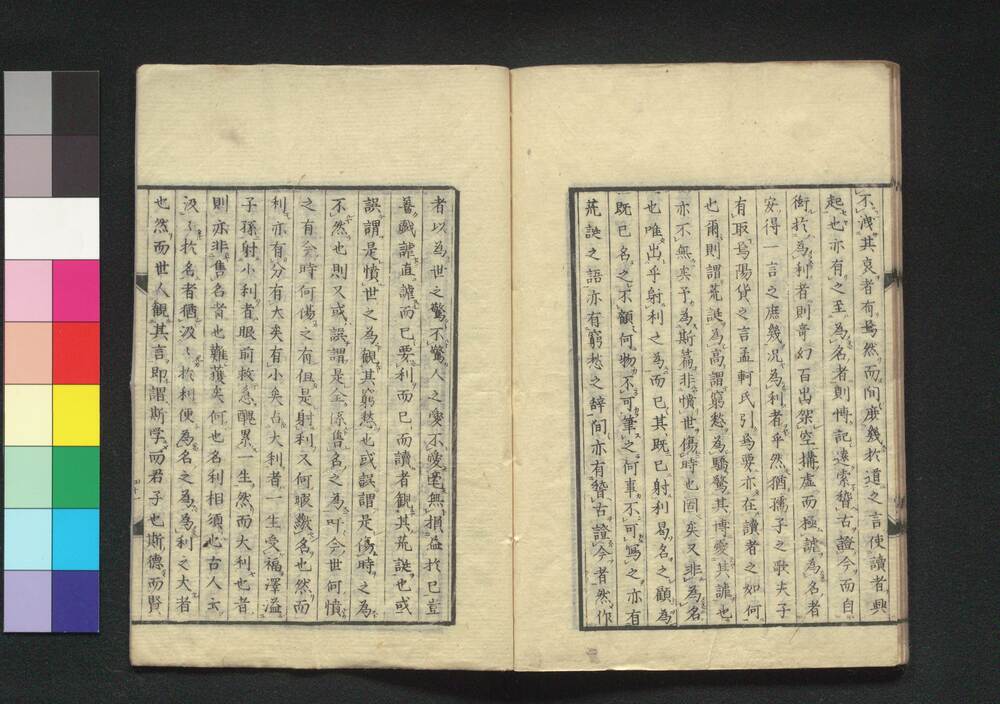 不洩其哀者有焉然而間庶幾於道之言使讀者興
起也亦有之至為名者則博記遠索稽古證今而自
衒於為利者則奇幻百出架空搆虛而極謔為名者
安得一言之庶幾况為利者乎然猶孺子之歌夫子
有取焉陽貨之言孟軻氏引焉要亦在讀者之如何
也爾則謂荒誕為高謂窮愁為驕驚其博愛其謔也
亦不無矣予為斯篇非憤世傷時也固矣又非為名
也唯出乎射利之為而已其既已射利曷名之顧為
既已名之不顧何物不可筆之何事不可寫之亦有
荒誕之語亦有窮愁之辭間亦有稽古證今者然作
者以為世之驚不驚人之愛不愛毫無損益於已豈
戲謔直謔而已要利而已而讀者觀其荒誕也或
誤謂是憤世之為觀其窮愁也或誤謂是傷時之為
不然也則又或誤謂是售名之為吁今世何憤
之有今時何傷之有但是射利又何暇歡名也然而
利亦有分有大矣有小矣占大利者一生受福澤溢
子孫射小利者眼前救急醜累一生然而大利也者
則亦非售名者也難獲矣何也名利相須也古人云
汲〻於名者猶汲〻於利便為名之為為利之大者
也然而世人觀其言即謂斯学而君子也斯德而賢